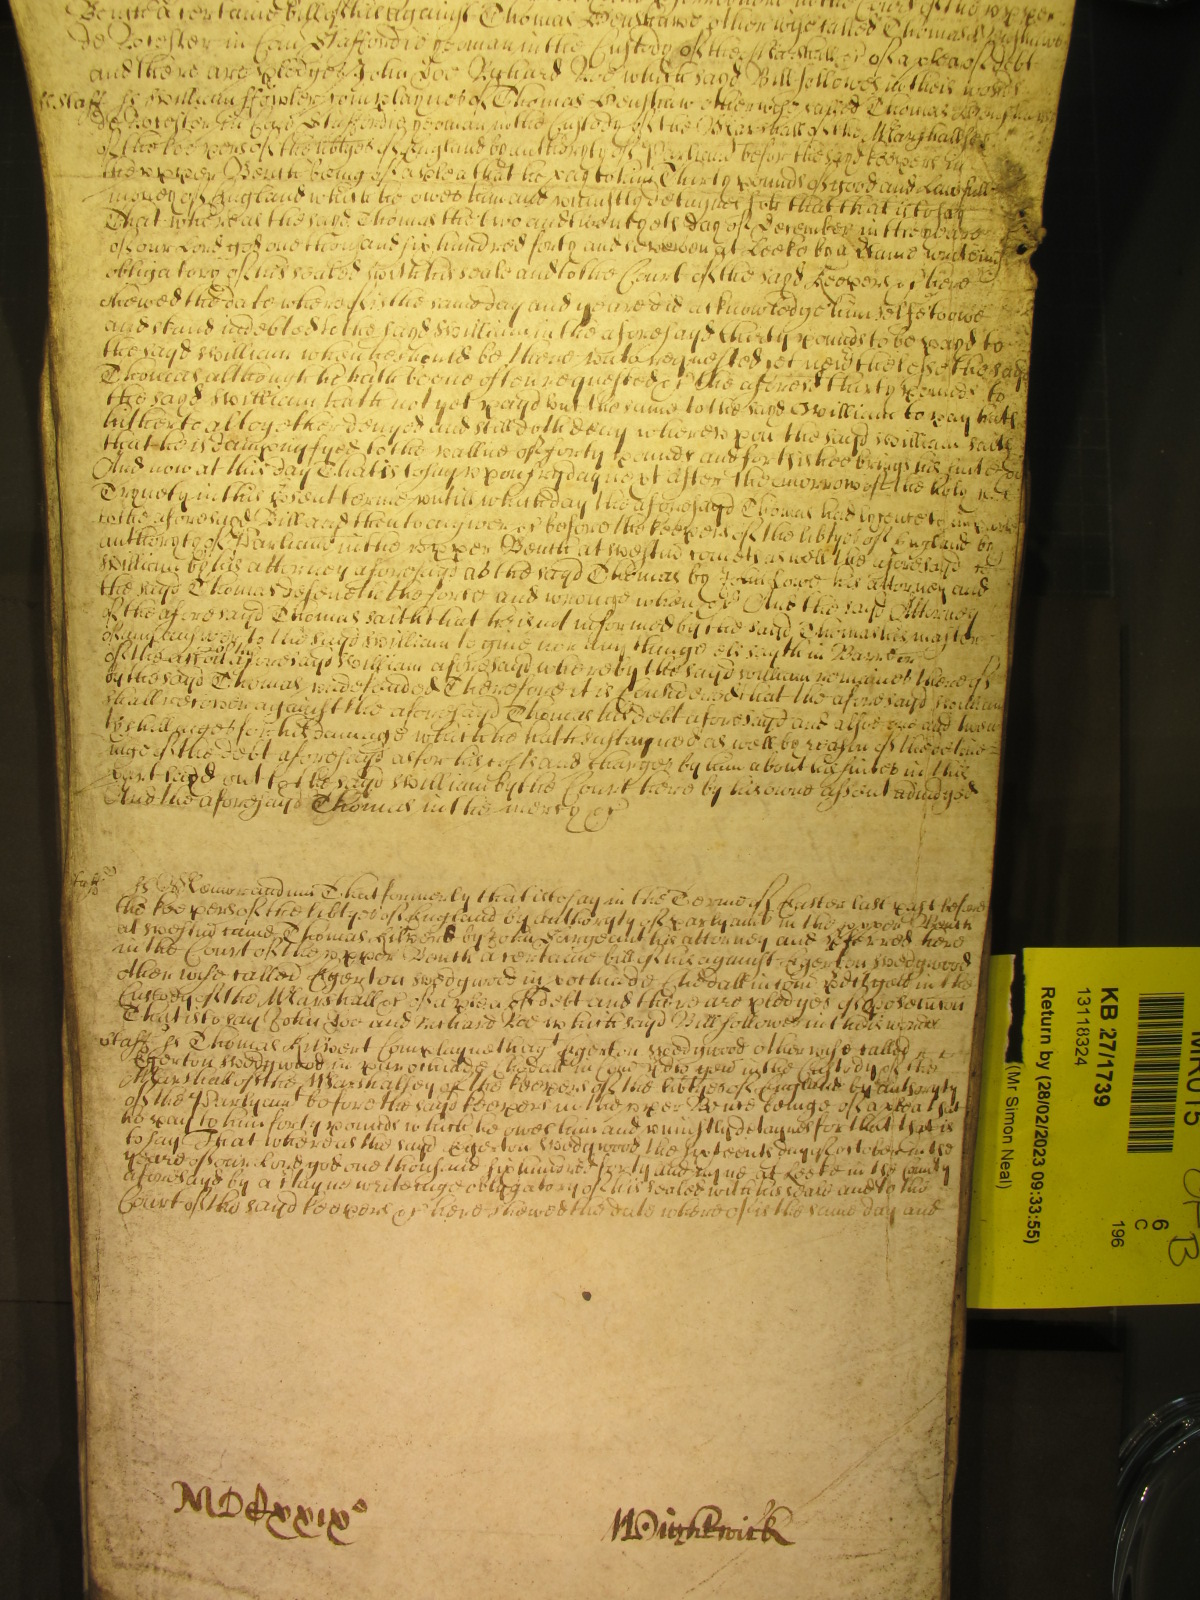 Bench a certaine bill of his against Thomas Henshawe otherwise called Thomas Henshawe
de Rocester in Com Stafford yeoman in the Custody of the Marshall &c of a plea of debt
and there are pledges John Doe Richard Roe which sayd Bill followes in theis words
Staff ss William complaynes of Thomas Henshaw otherwise called Thomas Henshawe
de Rocester in Com Stafford yeoman in the Custody of the Marshall of the Marshallsea
of the keepers of the libtyes of England by authoryty of Parliamt before the sayd keepers in
the upper Bench being of a plea that he pay to him Thirty pounds of good and lawfull
money of England which he owes him and uniustly detaynes for that that is to say
That whereas the sayd Thomas the two and twentyeth day of December in the yeare
of our Lord god one thousand six hundred forty and seven at Leeke by a writeing
obligatory of his sealed with his seale and to the Court of the sayd keepers &c here
shewed the date whereof is the same day and yeare did acknowledge himselfe to owe
and stand indebted to the sayd William in the aforesayd thirty pounds to be payd to
the sayd William when he should be there unto requested yet neverthelesse the sayd
Thomas although he hath beene often requested &c the aforesd thirty pounds to
the sayd William hath not yet payd but the same to the sayd William to pay hath
hitherto altogether denyed and still doth deny whereupon the sayd William saith
that he is dampnifyed to the vallue of forty pounds and for this hee brings his suite &c
And now at this day That is to say upon fryday next after the morrow of the holy
Trynety in this psent terme untill which day the aforesayd Thomas had lycence to
to the aforesayd Bill and then to answer &c before the keepers of the libtyes of England by
authoryty of Parliamt in the upper Bench at Westmr comes as well the aforesayd
William by his attorney aforesayd as the sayd Thomas by John Lowe his attorney and
the sayd Thomas defendeth the force and wronge when &c And the sayd Attorney
of the aforesayd Thomas saith that he is not informed by the sayd Thomas his master
of any answer to the sayd William to give nor any thinge els sayth in Barre
of the accon aforesayd of the sayd William aforesayd whereby the sayd William remaines thereof
by the sayd Thomas undefended Therefore it is Considered that the aforesayd William
shall recover against the aforesayd Thomas his debt aforesayd and alsoe
shillinges for his damage which he hath sustayned as well by reason of the
inge of the debt aforesayd as for his costs and charges by him about his suite in this
part layd out to the sayd William by the Court here by his owne assent adiudged
And the aforesayd Thomas in the mercy &c
Staff ss Memorandum That formerly that is to say in the Terme of Easter last past before
the keepers of the libtyes of England by authoryty of parlyamt in the upper Bench
at Westmr came Thomas by John Sargeant his attorney and pferred here
in the Court of the upper Bench a certaine bill of his against Egerton Wedgwood
otherwise called Egerton Wedgwood in in the
Custody of the Marshall &c of a plea of debt and there are pledges of prosecution
That is to say John Doe and Richard Roe which sayd Bill followes in theis words
Staff ss Thomas Complayneth agt Egerton Wedgwood otherwise called
Egerton Wedgwood in in the Custody of the
Marshall of the Marshalsey of the keepers of the libtyes of England by authoryty
of the Parlyamt before the sayd keepers in the upper Bench beinge of a plea that
he pay to him forty pounds which he owes him and uniustly detaynes for that that is
to say That whereas the sayd Egerton Wedgwood the sixteenth day of october in the
yeare of our Lord god one thousand six hundred forty and nyne at Leeke in the county
aforesayd by a writeinge obligatory of his sealed with his seale and to the
Court of the sayd keepers &c here shewed the date whereof is the same day and
MDCxxix
Wightwick
MR015
KB 27/1739
13118324
Return by (28/02/2023 09:33:55)
(Mr Simon Neal)
6
C
196